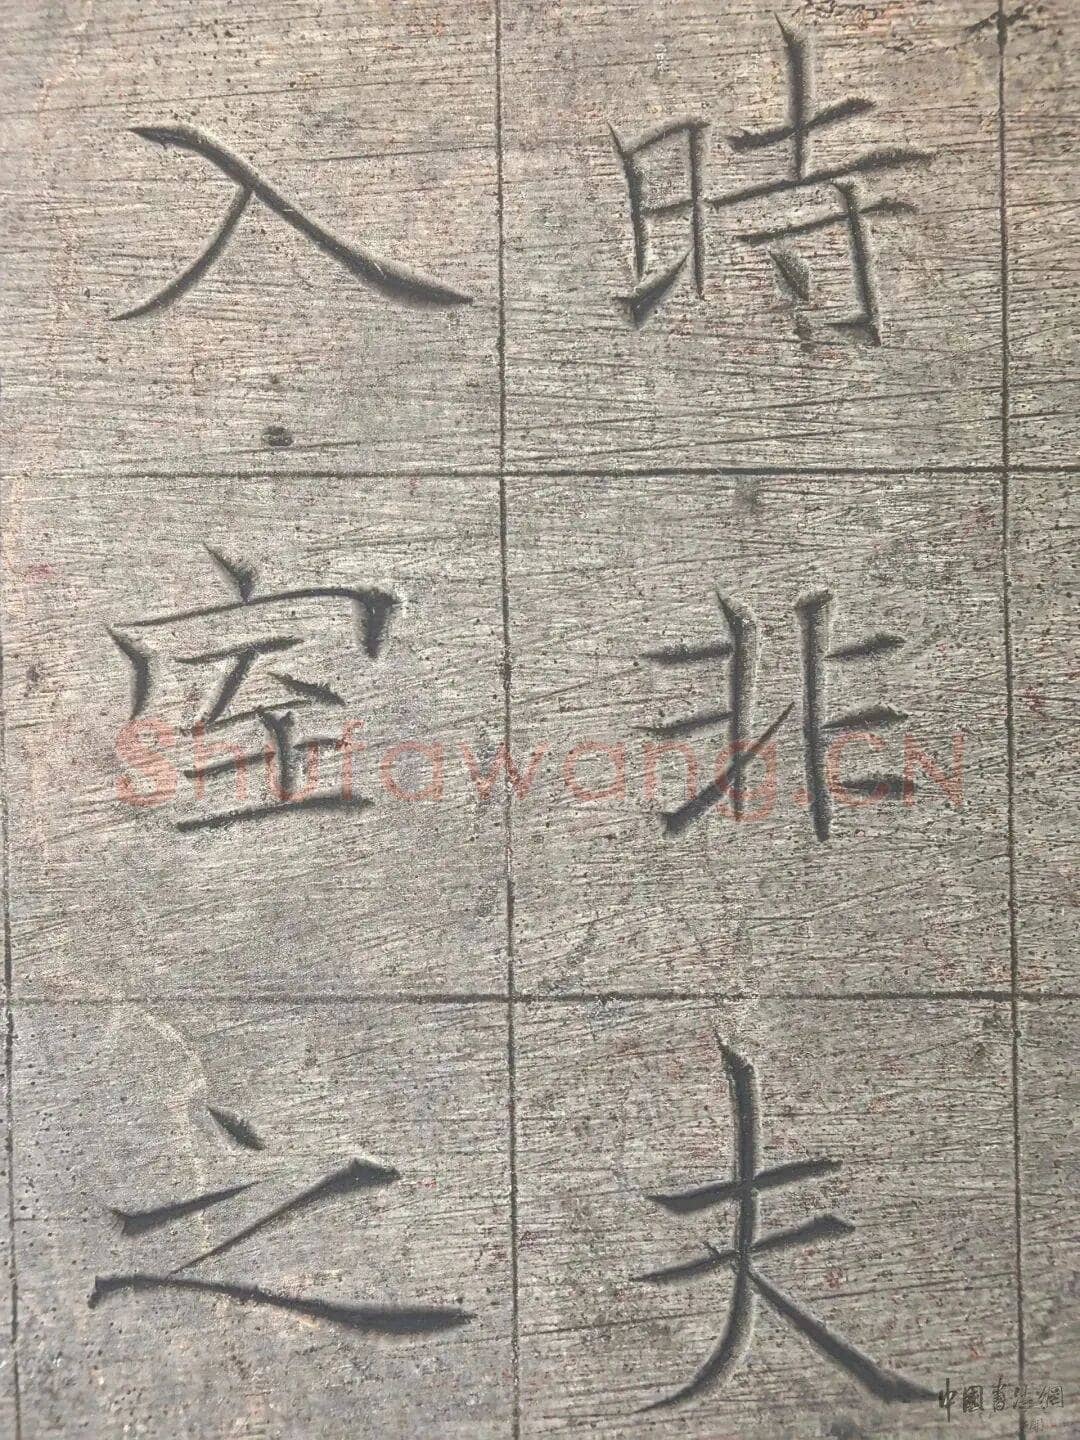 時非夫
入室之
Shufawang.CN
中國書法網